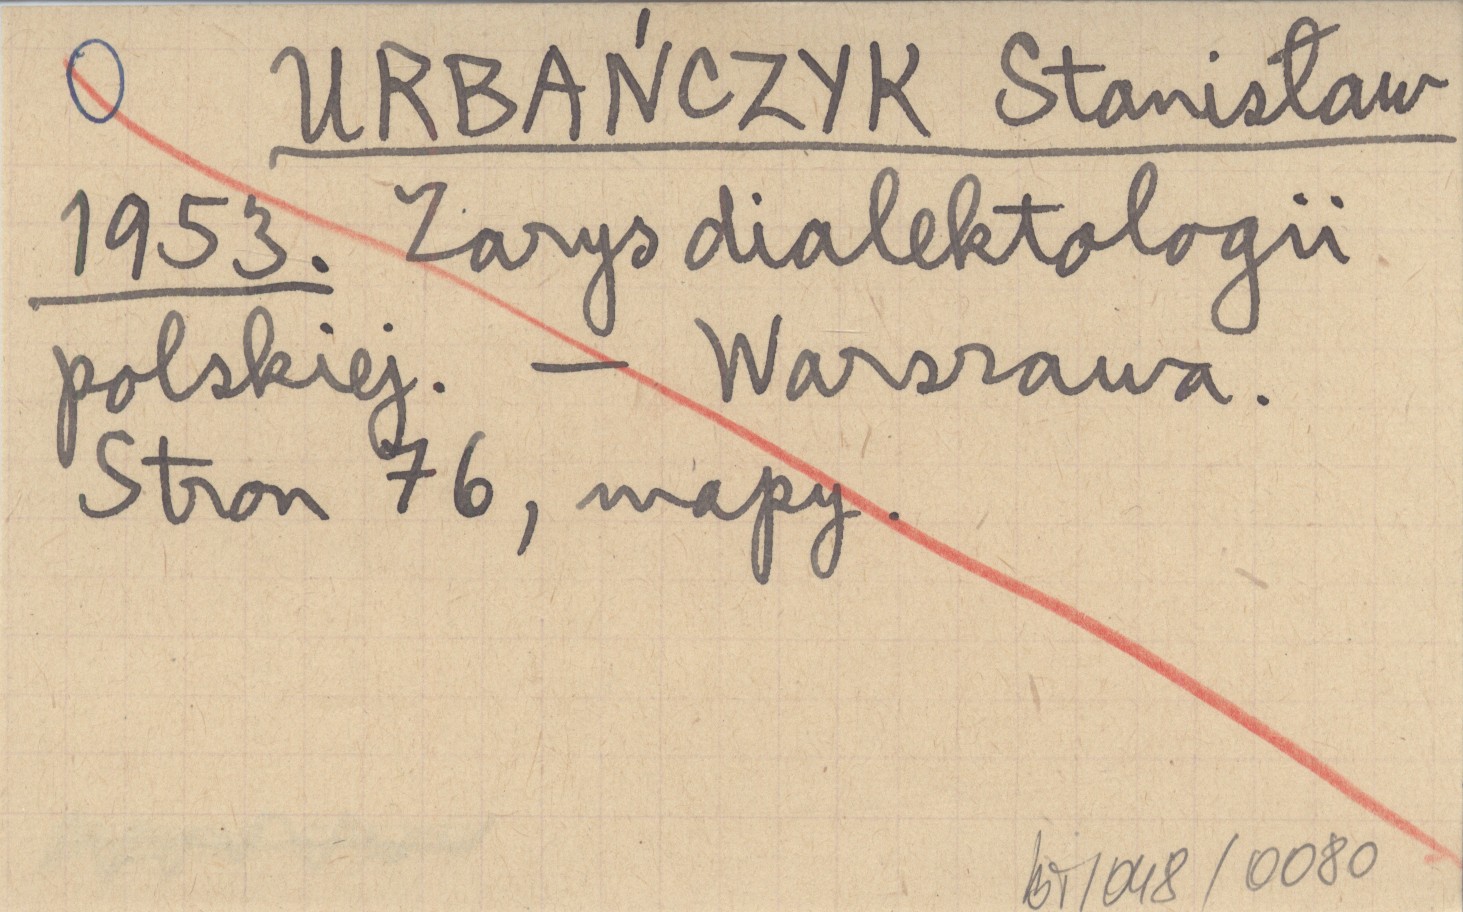 URBAŃCZYK Stanisław
1953. Zarys dialektologii
polskiej. — Warszawa.
Stron 76, mapy.
/048/0080